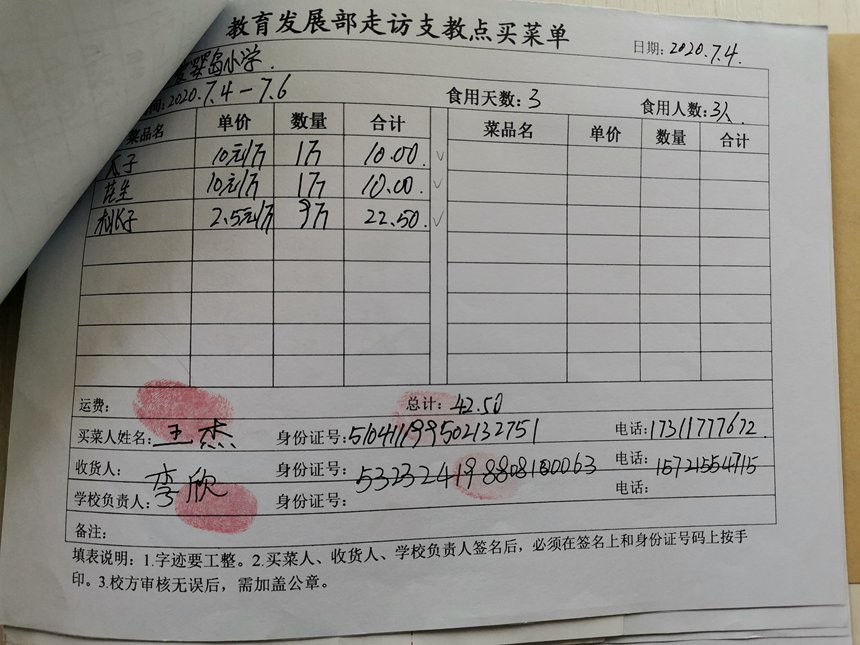 教育发展部走访支教点买菜单
日期: 2020.7.4.
岛小学.
间: 2020.7.4—7.6 食用天数: 3 食用人数: 3人.
菜品名 单价 数量 合计 菜品名 单价 数量 合计
瓜子 10元/斤 1斤 10.00. ✓
花生 10元/斤 1斤 10.00. ✓
2.5元/斤 9斤 22.50. ✓
运费: 总计: 42.50
买菜人姓名: 王杰 身份证号: 510411199502132751 电话: 17311777672.
收货人: 李欣 身份证号: 电话: 15721554715
学校负责人: 身份证号: 电话:
备注:
填表说明：1.字迹要工整。2.买菜人、收货人、学校负责人签名后，必须在签名上和身份证号码上按手
印。3.校方审核无误后，需加盖公章。